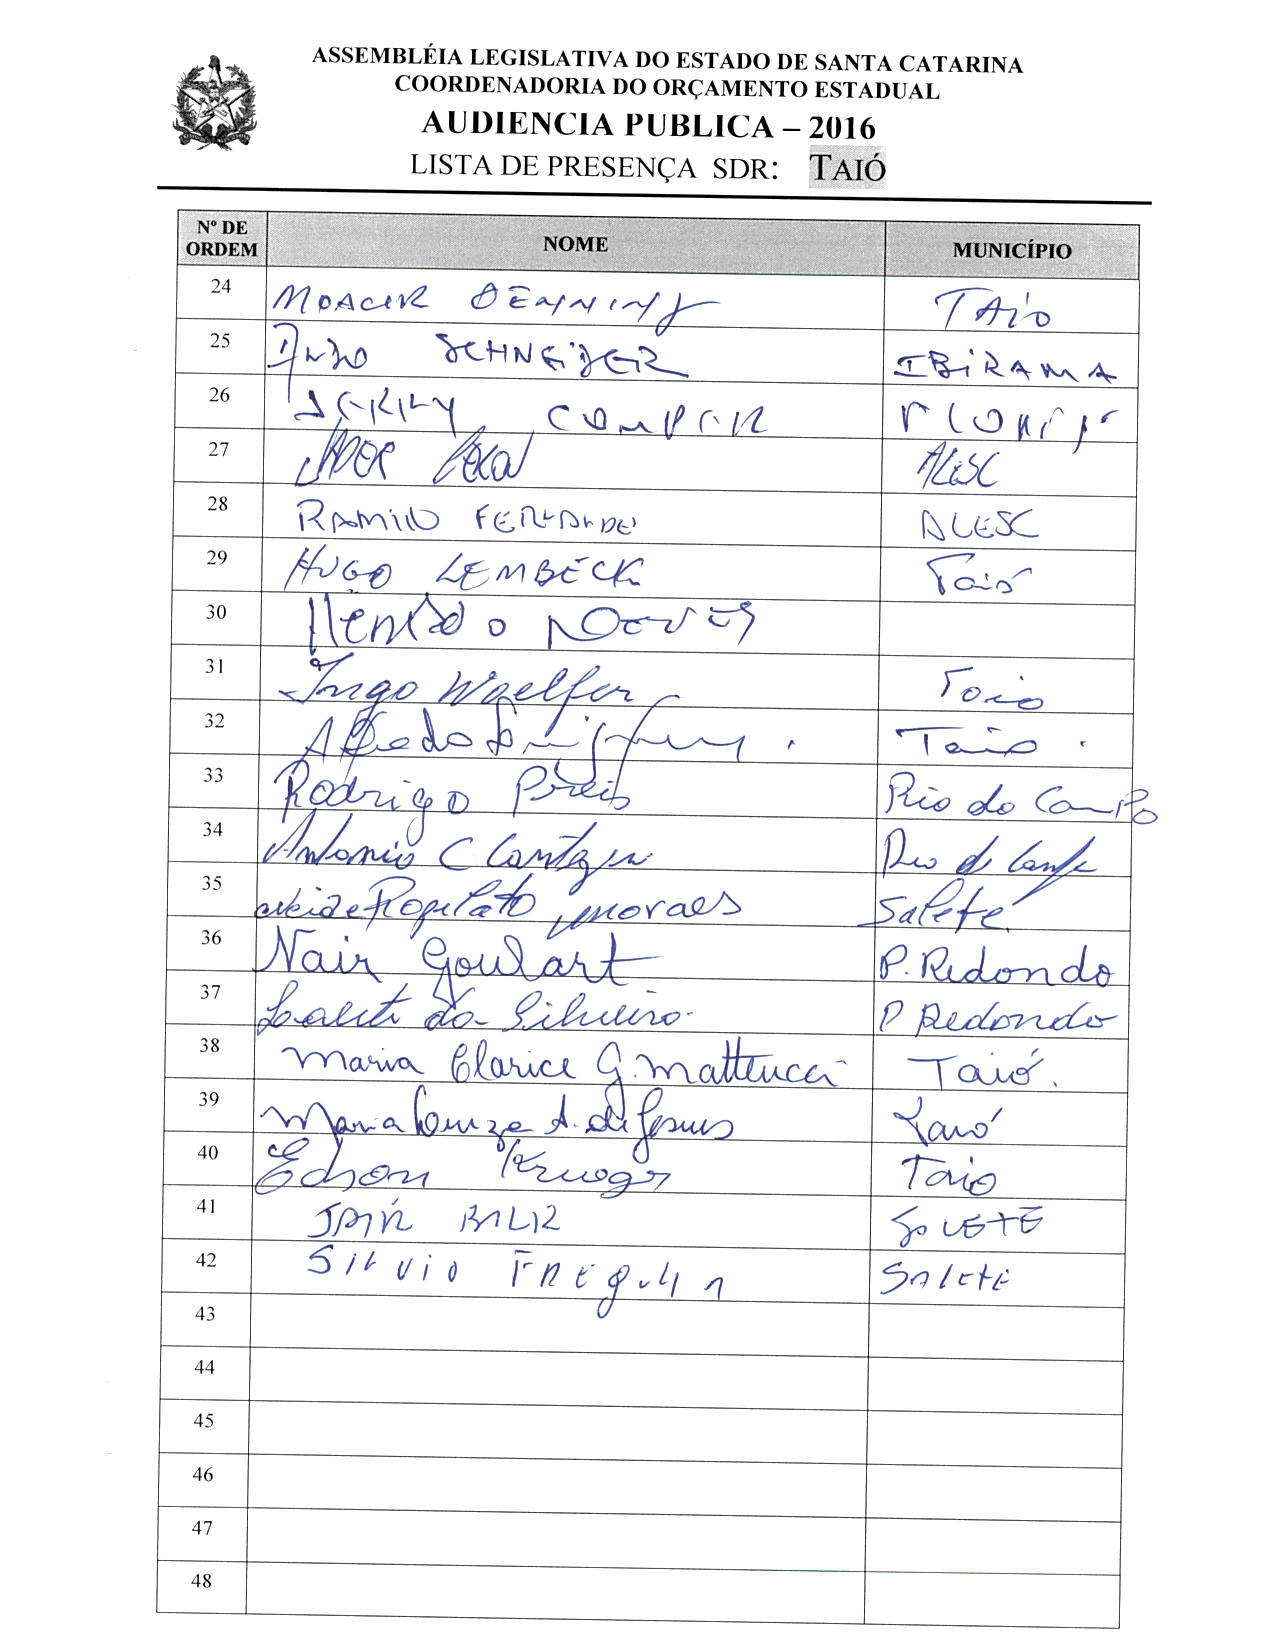 ASSEMBLÉIA LEGISLATIVA DO ESTADO DE SANTA CATARINA
COORDENADORIA DO ORÇAMENTO ESTADUAL
AUDIENCIA PUBLICA – 2016
LISTA DE PRESENÇA SDR: TAIÓ
Nº DE ORDEM NOME MUNICÍPIO
24 MOACIR TAIO
25 SCHNEIDER IBIRAMA
26
27 ALESC
28 RAMILO ALESC
29 HUGO LEMBECK Taió
30
31 Ingo Woelfer Taio
32 Alfredo Taio.
33 Rodrigo Preis Rio do Campo
34 Antonio C Rio do Campo
35 Neide Ropelato Moraes Salete
36 Nair Goulart P. Redondo
37 da Silveira P Redondo
38 Maria Clarice G. Matteucci Taió.
39 Maria Louza A. de Jesus Taió
40 Edson Krueger Taio
41 JAIR SALETE
42 SILVIO SALETE
43
44
45
46
47
48